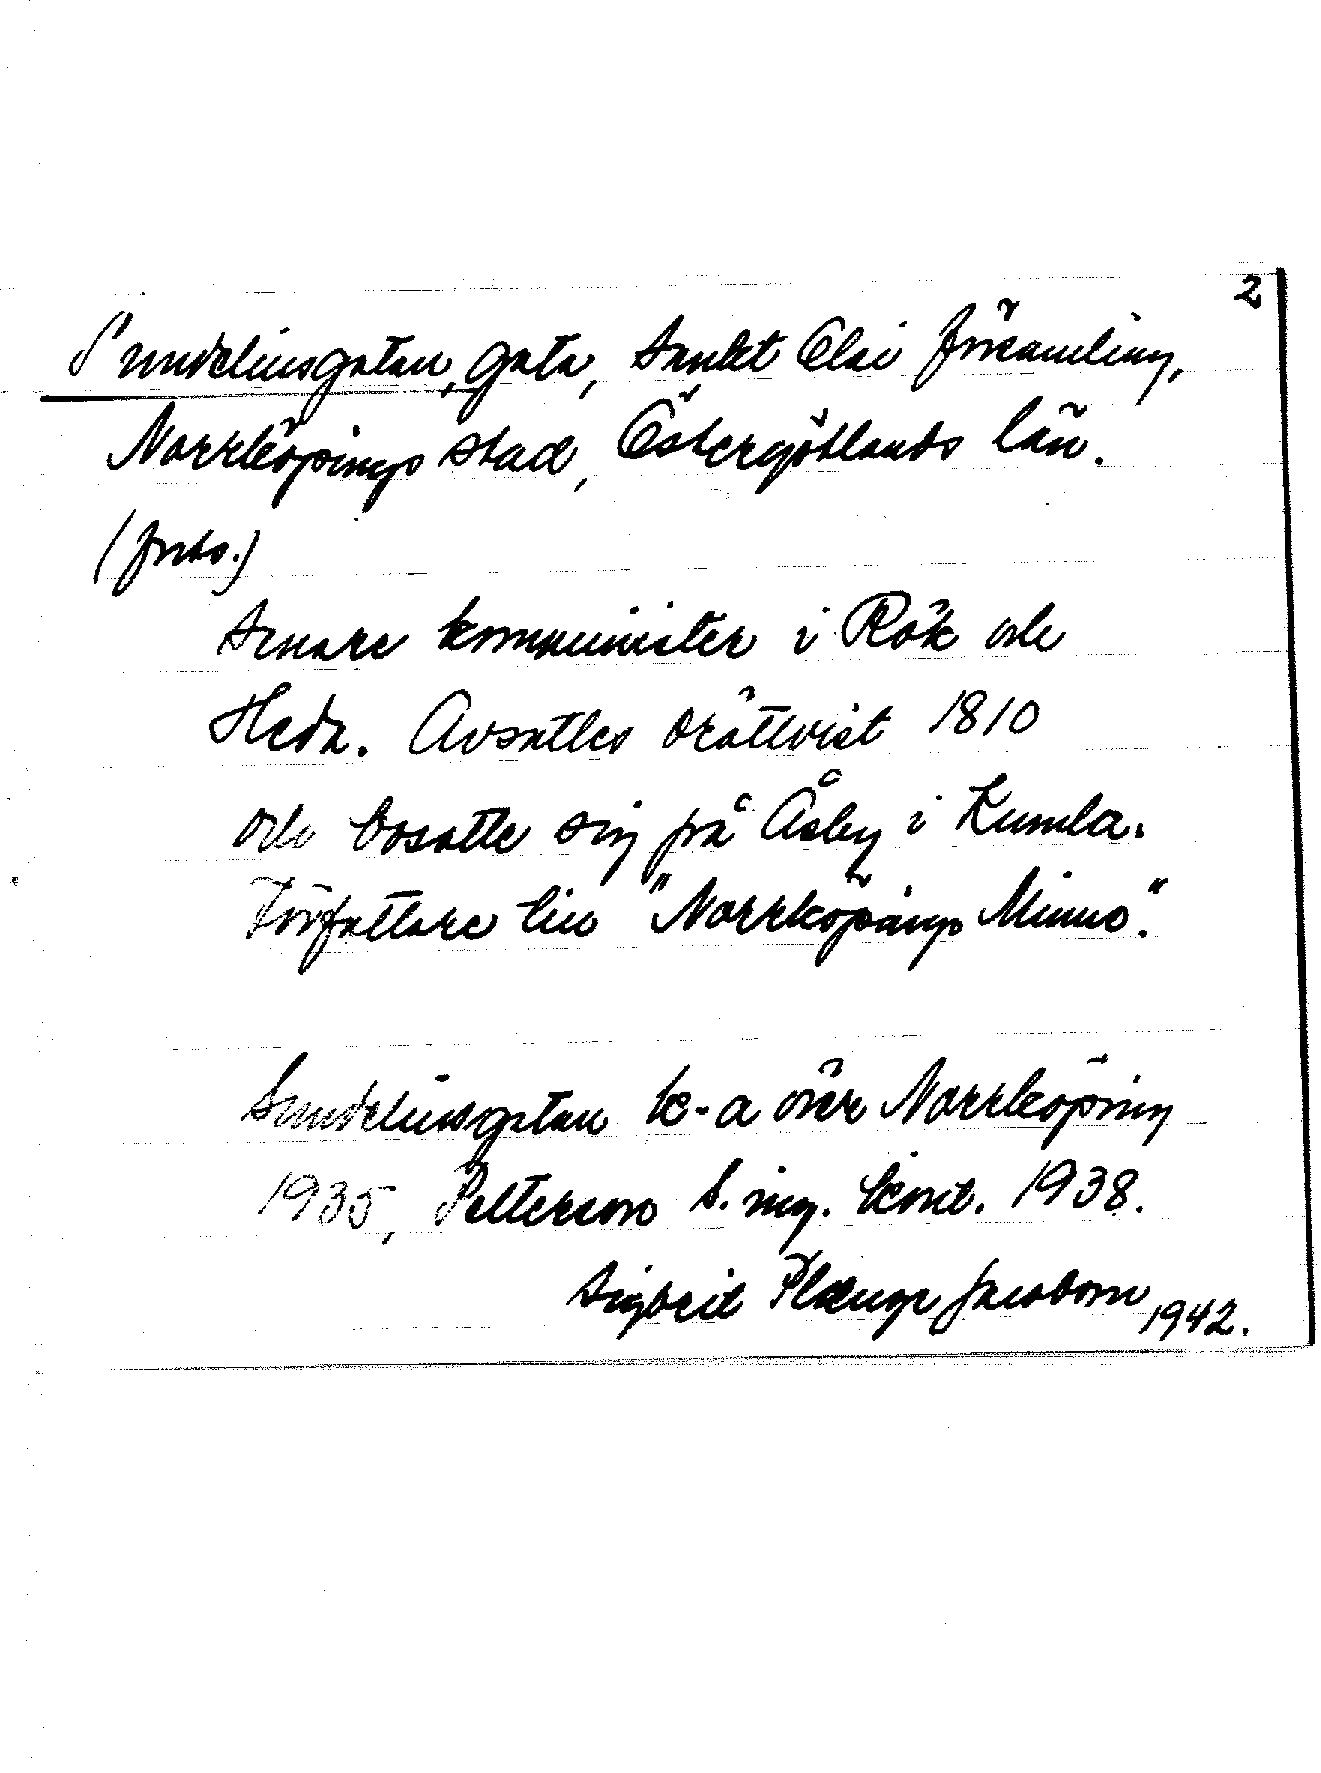 2
Sundelinsgatan, gata, Sankt Olai församling,
Norrköpings stad, Östergötlands län.
(forts.)
Senare komminister i Rök och
Heda. Avsattes orättvist 1810
och bosatte sig på Åsby i Kumla.
Författare till "Norrköpings Minne".
Sundelinsgatan k-a över Norrköping
1935, Petterson S. ing. kont. 1938.
Sigbrit Plænge Jacobson 1942.